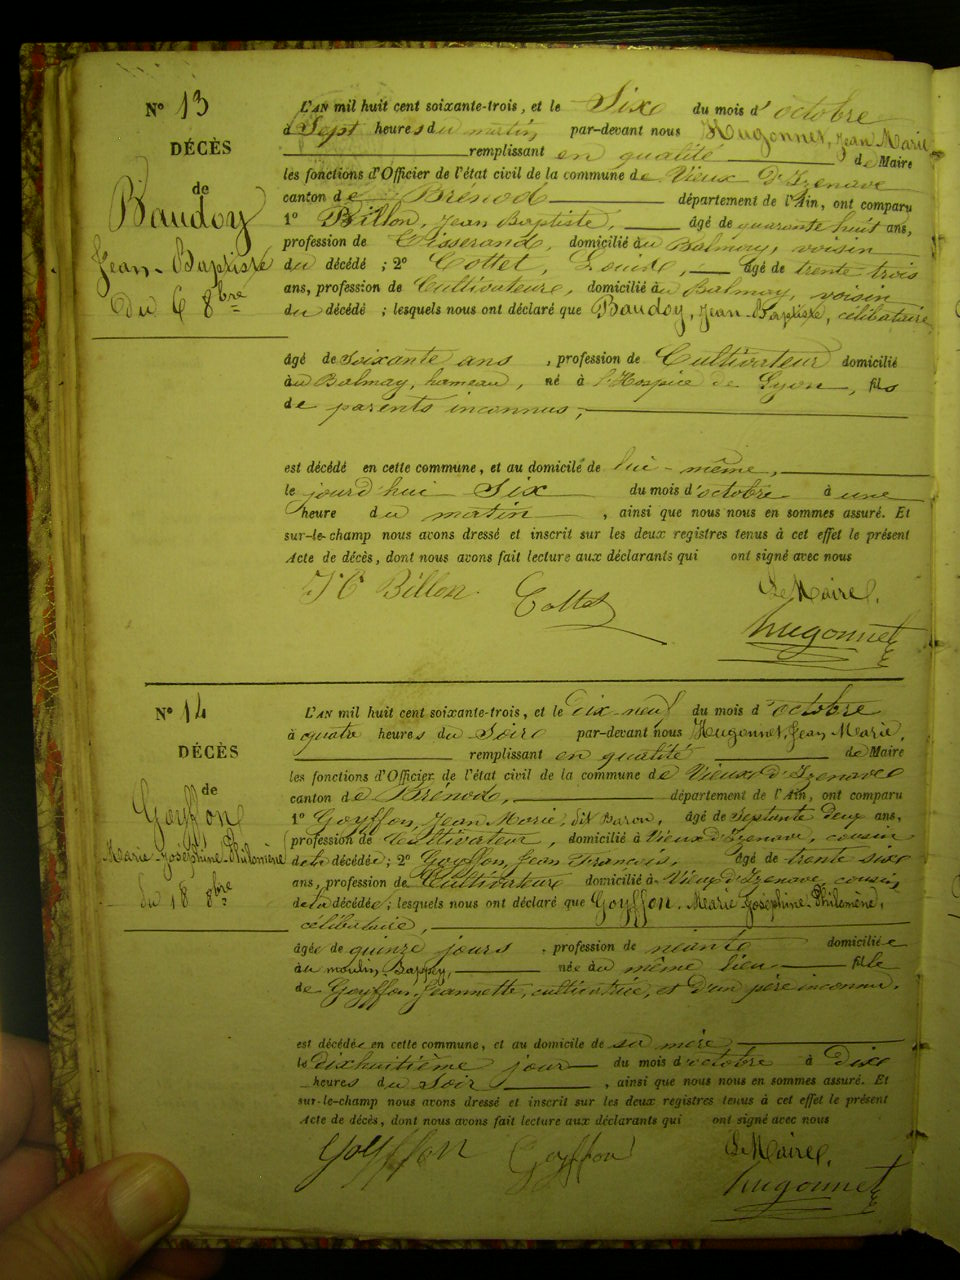 N° 13
DÉCÈS
de
Baudoy
Jean-Baptiste
Du 6 8bre
L'AN mil huit cent soixante-trois, et le Six du mois d'octobre
à Sept heures du matin, par-devant nous Hugonnet, Jean Marie
remplissant en qualité de Maire
les fonctions d'Officier de l'état civil de la commune de Vieux d'Izenave
canton de Brénod département de l'Ain, ont comparu
1° Billon, Jean Baptiste, âgé de quarante huit ans,
profession de Tisserand, domicilié au Balmay, voisin
du décédé ; 2° Cottet, Louis, âgé de trente trois
ans, profession de Cultivateur, domicilié au Balmay, voisin
du décédé ; lesquels nous ont déclaré que Baudoy, Jean-Baptiste, célibataire,
âgé de soixante ans, profession de Cultivateur domicilié
au Balmay, hameau, né à l'Hospice de Lyon, fils
de parents inconnus,
est décédé en cette commune, et au domicile de lui-même,
le jourd'hui Six du mois d'octobre à une
heure du matin, ainsi que nous nous en sommes assuré. Et
sur-le-champ nous avons dressé et inscrit sur les deux registres tenus à cet effet le présent
Acte de décès, dont nous avons fait lecture aux déclarants qui ont signé avec nous
Billon Cottet Le Maire,
hugonnet
N° 14
DÉCÈS
de
Goyffon
Marie-Joséphine-Philomène
Du 18 8bre
L'AN mil huit cent soixante-trois, et le dix-neuf du mois d'octobre
à quatre heures du Soir par-devant nous Hugonnet, Jean Marie,
remplissant en qualité de Maire
les fonctions d'Officier de l'état civil de la commune de Vieux d'Izenave
canton de Brénod, département de l'Ain, ont comparu
1° Goyffon, Jean Marie, dit Baron, âgé de septante deux ans,
profession de Cultivateur, domicilié à Vieux d'Izenave, cousin
de la décédée ; 2° Goyffon, Jean François, âgé de trente six
ans, profession de Cultivateur domicilié à Vieux d'Izenave, cousin
de la décédée ; lesquels nous ont déclaré que Goyffon, Marie Joséphine Philomène,
célibataire,
âgée de quinze jours, profession de néant domiciliée
au moulin Bappey, née au même lieu fille
de Goyffon, Jeannette, cultivatrice, et d'un père inconnu,
est décédée en cette commune, et au domicile de sa mère,
le dixhuitième jour du mois d'octobre à dix
heures du Soir, ainsi que nous nous en sommes assuré. Et
sur-le-champ nous avons dressé et inscrit sur les deux registres tenus à cet effet le présent
Acte de décès, dont nous avons fait lecture aux déclarants qui ont signé avec nous
Goyffon Goyffon Le Maire,
hugonnet